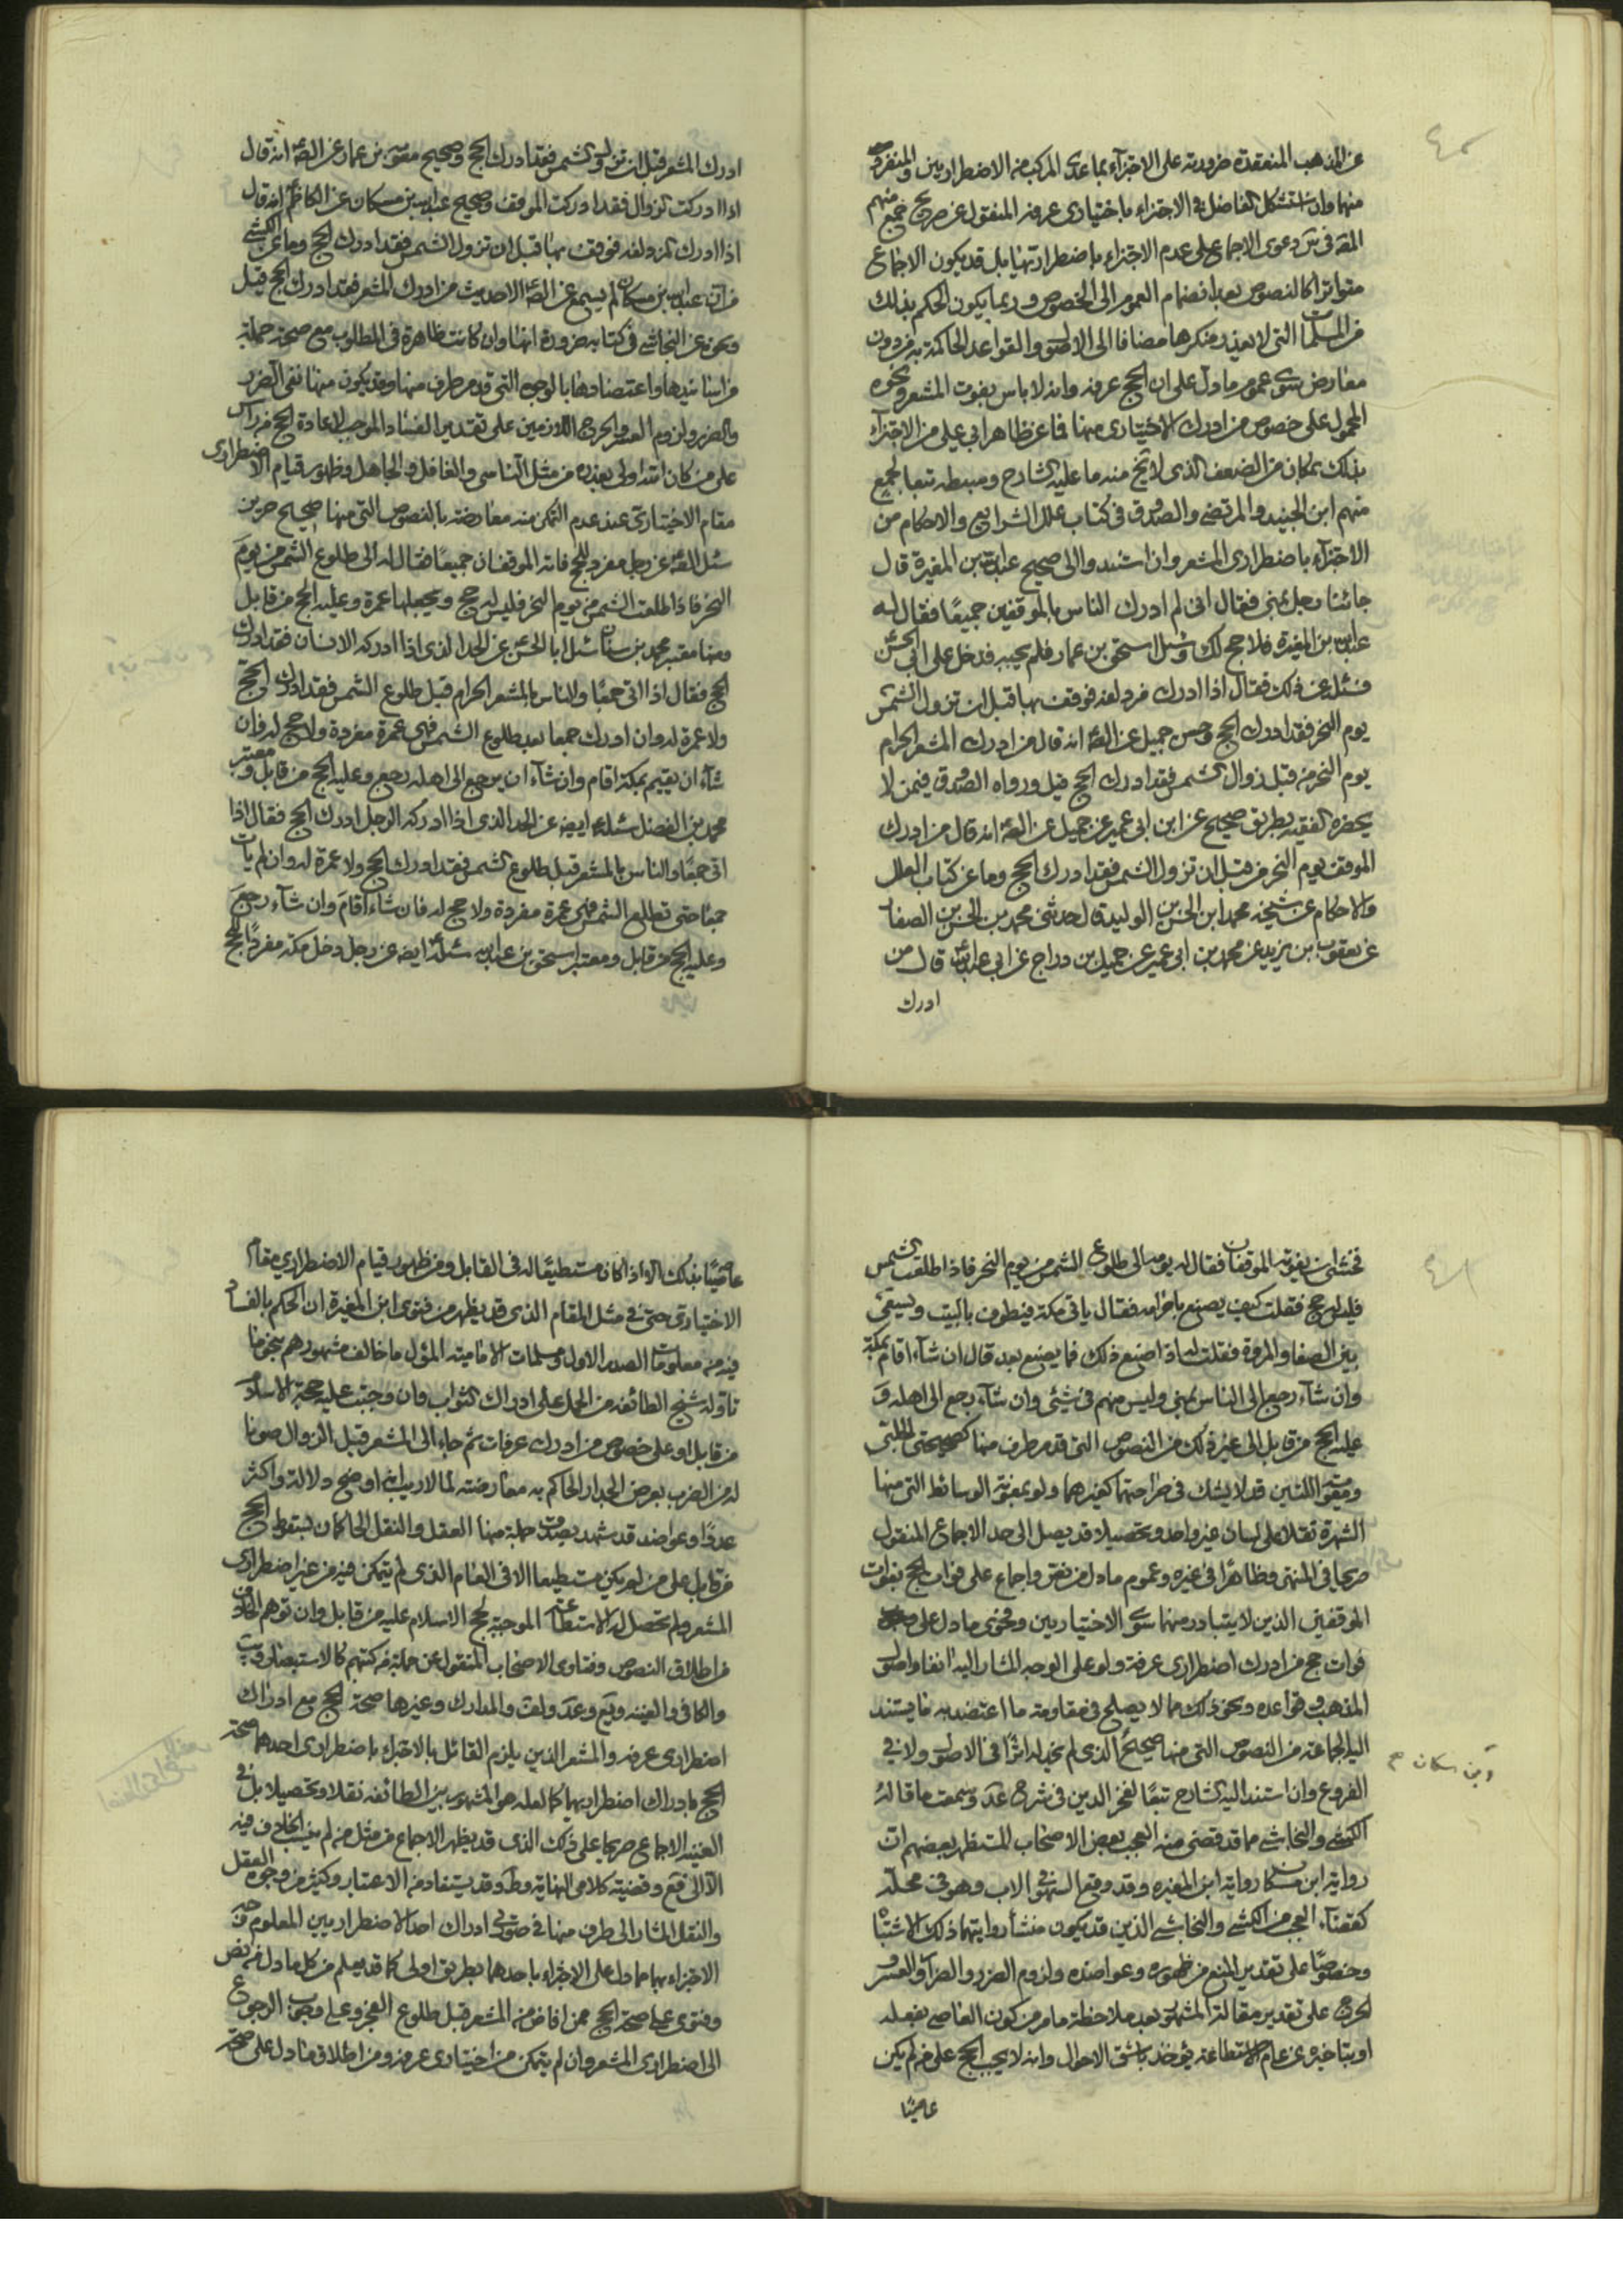 عن المذهب المنعقدة ضرورته على الاجتزاء بما عدى المركب من الاضطراريين والمنفرد
منها وان استشكل الفاضل في الاجتزاء باختيارى عرفه المنقول عن صريح جمع منهم
المة في ير دعوى الاجماع على عدم الاجتزاء باضطراريتها بل قد يكون الاجماع
متواترا كالنصوص بعد انضمام العموم الى الخصوص وربما يكون الحكم بذلك
من المسلمات التى لا يعذر منكرها مضافا الى الاصول والقواعد الحاكمة به من دون
معارض سوى عموم ما دل على ان الحج عرفه وانه لا باس بفوت المشعر ونحوه
المحمول على خصوص من ادرك الاختيارى منها فما عن ظاهر ابى على من الاجتزاء
بذلك بمكان من الضعف الذى لا ينجبر منه ما عليه الشارح وسبطه تبعا لجمع
منهم ابن الجنيد والمرتضى والصدوق في كتاب علل الشرايع والاحكام من
الاجتزاء باضطرارى المشعر وان استند والى صحيح عبدالله بن المغيرة قال
جائنا رجل بمنى فقال انى لم ادرك الناس بالموقفين جميعًا فقال له
عبدالله بن المغيرة فلا حج لك وسئل اسحق بن عمار فلم يجبه فدخل على ابى الحسن
فسئله عن ذلك فقال اذا ادرك مزدلفه فوقف بها قبل ان تزول الشمس
يوم النحر فقد ادرك الحج وحسن جميل عن الصه انه قال من ادرك المشعر الحرام
يوم النحر من قبل زوال الشمس فقد ادرك الحج قيل ورواه الصدوق فيمن لا
يحضره الفقيه بطريق صحيح عن ابن ابى عمير عن جميل عن الصه انه قال من ادرك
الموقف يوم النحر من قبل ان تزول الشمس فقد ادرك الحج وما عن كتاب العلل
والاحكام عن شيخه محمد ابن الحسن بن الوليد قال حدثنى محمد بن الحسن الصفار
عن يعقوب بن يزيد عن محمد بن ابى عمير عن جميل بن دراج عن ابى عبدالله قال من
ادرك
ادرك المشعر قبل ان تزول الشمس فقد ادرك الحج وصحيح معوية بن عمار عن الصه انه قال
اذا ادركت الزوال فقد ادركت الموقف وصحيح عبدالله بن مسكان عن الكاظم انه قال
اذا ادرك المزدلفه فوقف بها قبل ان تزول الشمس فقد ادرك الحج وما عن الكشى
من ان عبدالله بن مسكان لم يسمع عن الصه الا حديث من ادرك المشعر فقد ادرك الحج قيل
ونحوه عن النجاشى في كتابه ضرورة انها وان كانت ظاهرة في المطلوب مع صحة جملة
من اسانيدها واعتضادها بالوجوه التى قد مر طرف منها وقد يكون منها نفى الضرر
والضرر ولزوم العسر والحرج اللازمين على تقدير الفساد الموجب لاعادة الحج من راس
على من كان الله اولى بعذره من مثل الناسى والغافل والجاهل وظهور قيام الاضطرارى
مقام الاختيارى عند عدم التمكن منه معارضة بالنصوص التى منها صحيح حريز
سئل الصه عن رجل مفرد للحج فاته الموقفان جميعًا فقال له الى طلوع الشمس من يوم
النحر فاذا طلعت الشمس من يوم النحر فليس له حج ويجعلها عمرة وعليه الحج من قابل
ومنها معتبر محمد بن سنان سئل ابا الحسن عن الحد الذى اذا ادركه الانسان فقد ادرك
الحج فقال اذا اتى جمعًا والناس بالمشعر الحرام قبل طلوع الشمس فقد ادرك الحج
ولا عمرة له وان ادرك جمعا بعد طلوع الشمس فهى عمرة مفردة ولا حج له فان
شآء ان يقيم بمكة اقام وان شآء ان يرجع الى اهله رجع وعليه الحج من قابل ومعتبر
محمد بن الفضل سئله ايضه عن الحد الذى اذا ادركه الرجل ادرك الحج فقال اذا
اتى جمعًا والناس بالمشعر قبل طلوع الشمس فقد ادرك الحج ولا عمرة له وان لم يات
جمعًا حتى تطلع الشمس فهى عمرة مفردة ولا حج له فان شاء اقام وان شآء رجع
وعليه الحج من قابل ومعتبر اسحق بن عبدالله سئله ايضه عن رجل دخل مكة مفردًا للحج
فخشى ان يفوته الموقفان فقال له يومه الى طلوع الشمس من يوم النحر فاذا طلعت الشمس
فليس له حج فقلت كيف يصنع باحرامه فقال ياتى مكة فيطوف بالبيت ويسعى
بين الصفا والمروة فقلت له اذا صنع ذلك فما يصنع بعد قال ان شآء اقام بمكة
وان شآء رجع الى الناس بمنى وليس منهم في شئى وان شآء رجع الى اهله و
عليه الحج من قابل الى غير ذلك من النصوص التى قد مر طرف منها كصحيحتى الحلبى
ومعوية اللتين قد لا يشك في صراحتهما كغيرهما ولو بمعونة الوسائط التى منها
الشهرة نقلا على لسان غير واحد وتحصيلا قد يصل الى حد الاجماع المنقول
صريحا في المنتهى وظاهرًا في غيره وعموم ما دل من نص واجماع على فوات الحج بفوات
الموقفين الذين لا يتبادر منهما سوى الاختياريين وفحوى ما دل على
فوات حج من ادرك اضطرارى عرفة ولو على الوجه المشار اليه انفا واصول
المذهب وقواعده ونحو ذلك مما لا يصلح في مقاومته ما اعتضد به ما يستند
اليه الجماعة من النصوص التى منها صحيح الذى لم نجد له اثرًا في الاصول ولا في
الفروع وان استند اليه الشارح تبعًا لفخر الدين في شرح عد وسمعت ما قاله
الكشى والنجاشى مما قد قضى منه العجب بعض الاصحاب المستظهر بعضهم ان
رواية ابن مسكان رواية ابن المغيره وقد وقع السهو في الاب وهو في محله
كقضآء العجب من الكشى والنجاشى الذين قد يكون منشأ روايتهما ذلك الاشتباه
وخصوصًا على تقدير المنع من ظهوره وعواضده ولزوم الضرر والضرار والعسر و
الحرج على تقدير مقالة المشهور بعد ملاحظة ما مر من كون العاصى بفعله
او بتاخيره عن عام الاستطاعة يؤخذ باشق الاحوال وانه لا يجب الحج على من لم يكن
عاصيًا
ابن مسكان صح
عاصيًا بذلك الا اذا كان مستطيعًا له في القابل ومن ظهور قيام الاضطرارى مقام
الاختيارى حتى في مثل المقام الذى قد يظهر من فتوى ابن المغيرة ان الحكم بالفساد
فيه من معلومات الصدر الاول ومسلمات الامامية المؤل ما خالف مشهورهم بنحو ما
تاوله شيخ الطائفه من الحمل على ادراك الثواب وان وجبت عليه حجة الاسلام
من قابل او على خصوص من ادرك عرفات ثم جاء الى المشعر قبل الزوال صونا
له من الضرب بعرض الجدار الحاكم به معارضته لما لا ريب انه اوضح دلالة واكثر
عددًا وعواضد قد شهد بصدق جملة منها العقل والنقل الحاكمان بسقوط الحج
من قابل على من لم يكن مستطيعا الا في العام الذى لم يتمكن فيه من غير اضطرارى
المشعر ولم تحصل له الاستطاعة الموجبة لحج الاسلام عليه من قابل وان توهم الخلاف
من اطلاق النصوص وفتاوى الاصحاب المنقول عن جملة من كتبهم كالاستبصار ويب
والكافى والغنيه ويع وعد ولف والمدارك وغيرها صحة الحج مع ادراك
اضطرارى عرفه والمشعر الذين يلزم القائل بالاجتزاء باضطرارى احدهما صحة
الحج بادراك اضطراريهما كما لعله هو المشهور بين الطائفه نقلا وتحصيلا بل في
الغنيه الاجماع صريحا على ذلك الذى قد يظهر الاجماع من مثل من لم ينسب الخلاف فيه
الا الى قع وقضية كلامى النهاية وط وقد يستفاد من الاعتبار وكثير من وجوه العقل
والنقل المشار الى طرف منها في صورتى ادراك احد الاضطراريين المعلوم من
الاجتزاء بهما مما دل على الاجتزاء باحدهما بطريق اولى كما قد يعلم من كل ما دل من نص
وفتوى على صحة الحج ممن افاض من المشعر قبل طلوع الفجر وعلى وجوب الرجوع
الى اضطرارى المشعر وان لم يتمكن من اختيارى عرفه ومن اطلاق ما دل على صحة